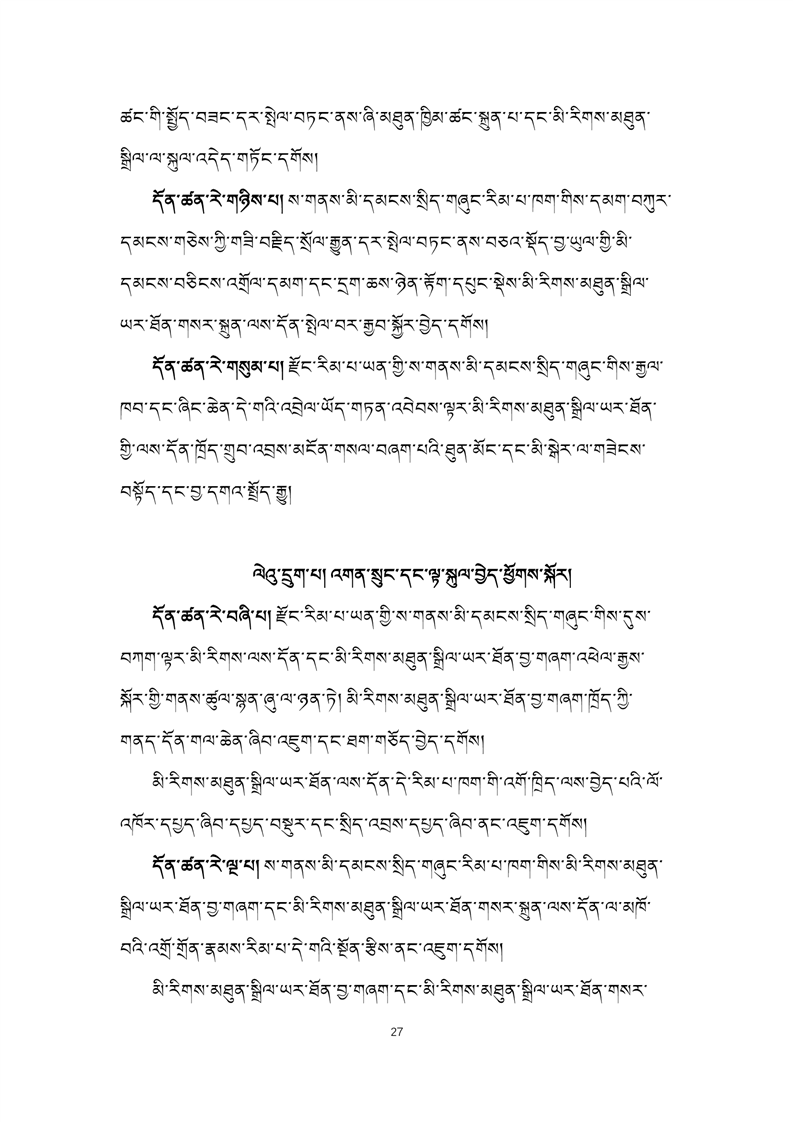 ཚང་གི་སྤྱོད་བཟང་དར་སྤེལ་བཏང་ནས་ཞི་མཐུན་ཁྱིམ་ཚང་སྐྲུན་པ་དང་མི་རིགས་མཐུན་
སྒྲིལ་ལ་སྐུལ་འདེད་གཏོང་དགོས།
དོན་ཚན་རེ་གཉིས་པ། ས་གནས་མི་དམངས་སྲིད་གཞུང་རིམ་པ་ཁག་གིས་དམག་བཀུར་
དམངས་གཅེས་ཀྱི་གཟི་བརྗིད་སྲོལ་རྒྱུན་དར་སྤེལ་བཏང་ནས་བཅའ་སྡོད་བྱ་ཡུལ་གྱི་མི་
དམངས་བཅིངས་འགྲོལ་དམག་དང་དྲག་ཆས་ཉེན་རྟོག་དཔུང་སྡེས་མི་རིགས་མཐུན་སྒྲིལ་
ཡར་ཐོན་གསར་སྐྲུན་ལས་དོན་སྤེལ་བར་རྒྱབ་སྐྱོར་བྱེད་དགོས།
དོན་ཚན་རེ་གསུམ་པ། རྫོང་རིམ་པ་ཡན་གྱི་ས་གནས་མི་དམངས་སྲིད་གཞུང་གིས་རྒྱལ་
ཁབ་དང་ཞིང་ཆེན་དེ་གའི་འབྲེལ་ཡོད་གཏན་འབེབས་ལྟར་མི་རིགས་མཐུན་སྒྲིལ་ཡར་ཐོན་
གྱི་ལས་དོན་ཁྲོད་གྲུབ་འབྲས་མངོན་གསལ་བཞག་པའི་ཐུན་མོང་དང་མི་སྒེར་ལ་གཟེངས་
བསྟོད་དང་བྱ་དགའ་སྤྲོད་རྒྱུ།
ལེའུ་དྲུག་པ། འགན་སྲུང་དང་ལྟ་སྐུལ་བྱེད་ཕྱོགས་སྐོར།
དོན་ཚན་རེ་བཞི་པ། རྫོང་རིམ་པ་ཡན་གྱི་ས་གནས་མི་དམངས་སྲིད་གཞུང་གིས་དུས་
བཀག་ལྟར་མི་རིགས་ལས་དོན་དང་མི་རིགས་མཐུན་སྒྲིལ་ཡར་ཐོན་བྱ་གཞག་འཕེལ་རྒྱས་
སྐོར་གྱི་གནས་ཚུལ་སྙན་ཞུ་ལ་ཉན་ཏེ། མི་རིགས་མཐུན་སྒྲིལ་ཡར་ཐོན་བྱ་གཞག་ཁྲོད་ཀྱི་
གནད་དོན་གལ་ཆེན་ཞིབ་འཇུག་དང་ཐག་གཅོད་བྱེད་དགོས།
མི་རིགས་མཐུན་སྒྲིལ་ཡར་ཐོན་ལས་དོན་དེ་རིམ་པ་ཁག་གི་འགོ་ཁྲིད་ལས་བྱེད་པའི་ལོ་
འཁོར་དཔྱད་ཞིབ་དཔྱད་བསྡུར་དང་སྲིད་འབྲས་དཔྱད་ཞིབ་ནང་འཇུག་དགོས།
དོན་ཚན་རེ་ལྔ་པ། ས་གནས་མི་དམངས་སྲིད་གཞུང་རིམ་པ་ཁག་གིས་མི་རིགས་མཐུན་
སྒྲིལ་ཡར་ཐོན་བྱ་གཞག་དང་མི་རིགས་མཐུན་སྒྲིལ་ཡར་ཐོན་གསར་སྐྲུན་ལས་དོན་ལ་མཁོ་
བའི་འགྲོ་གྲོན་རྣམས་རིམ་པ་དེ་གའི་སྔོན་རྩིས་ནང་འཇུག་དགོས།
མི་རིགས་མཐུན་སྒྲིལ་ཡར་ཐོན་བྱ་གཞག་དང་མི་རིགས་མཐུན་སྒྲིལ་ཡར་ཐོན་གསར་
27